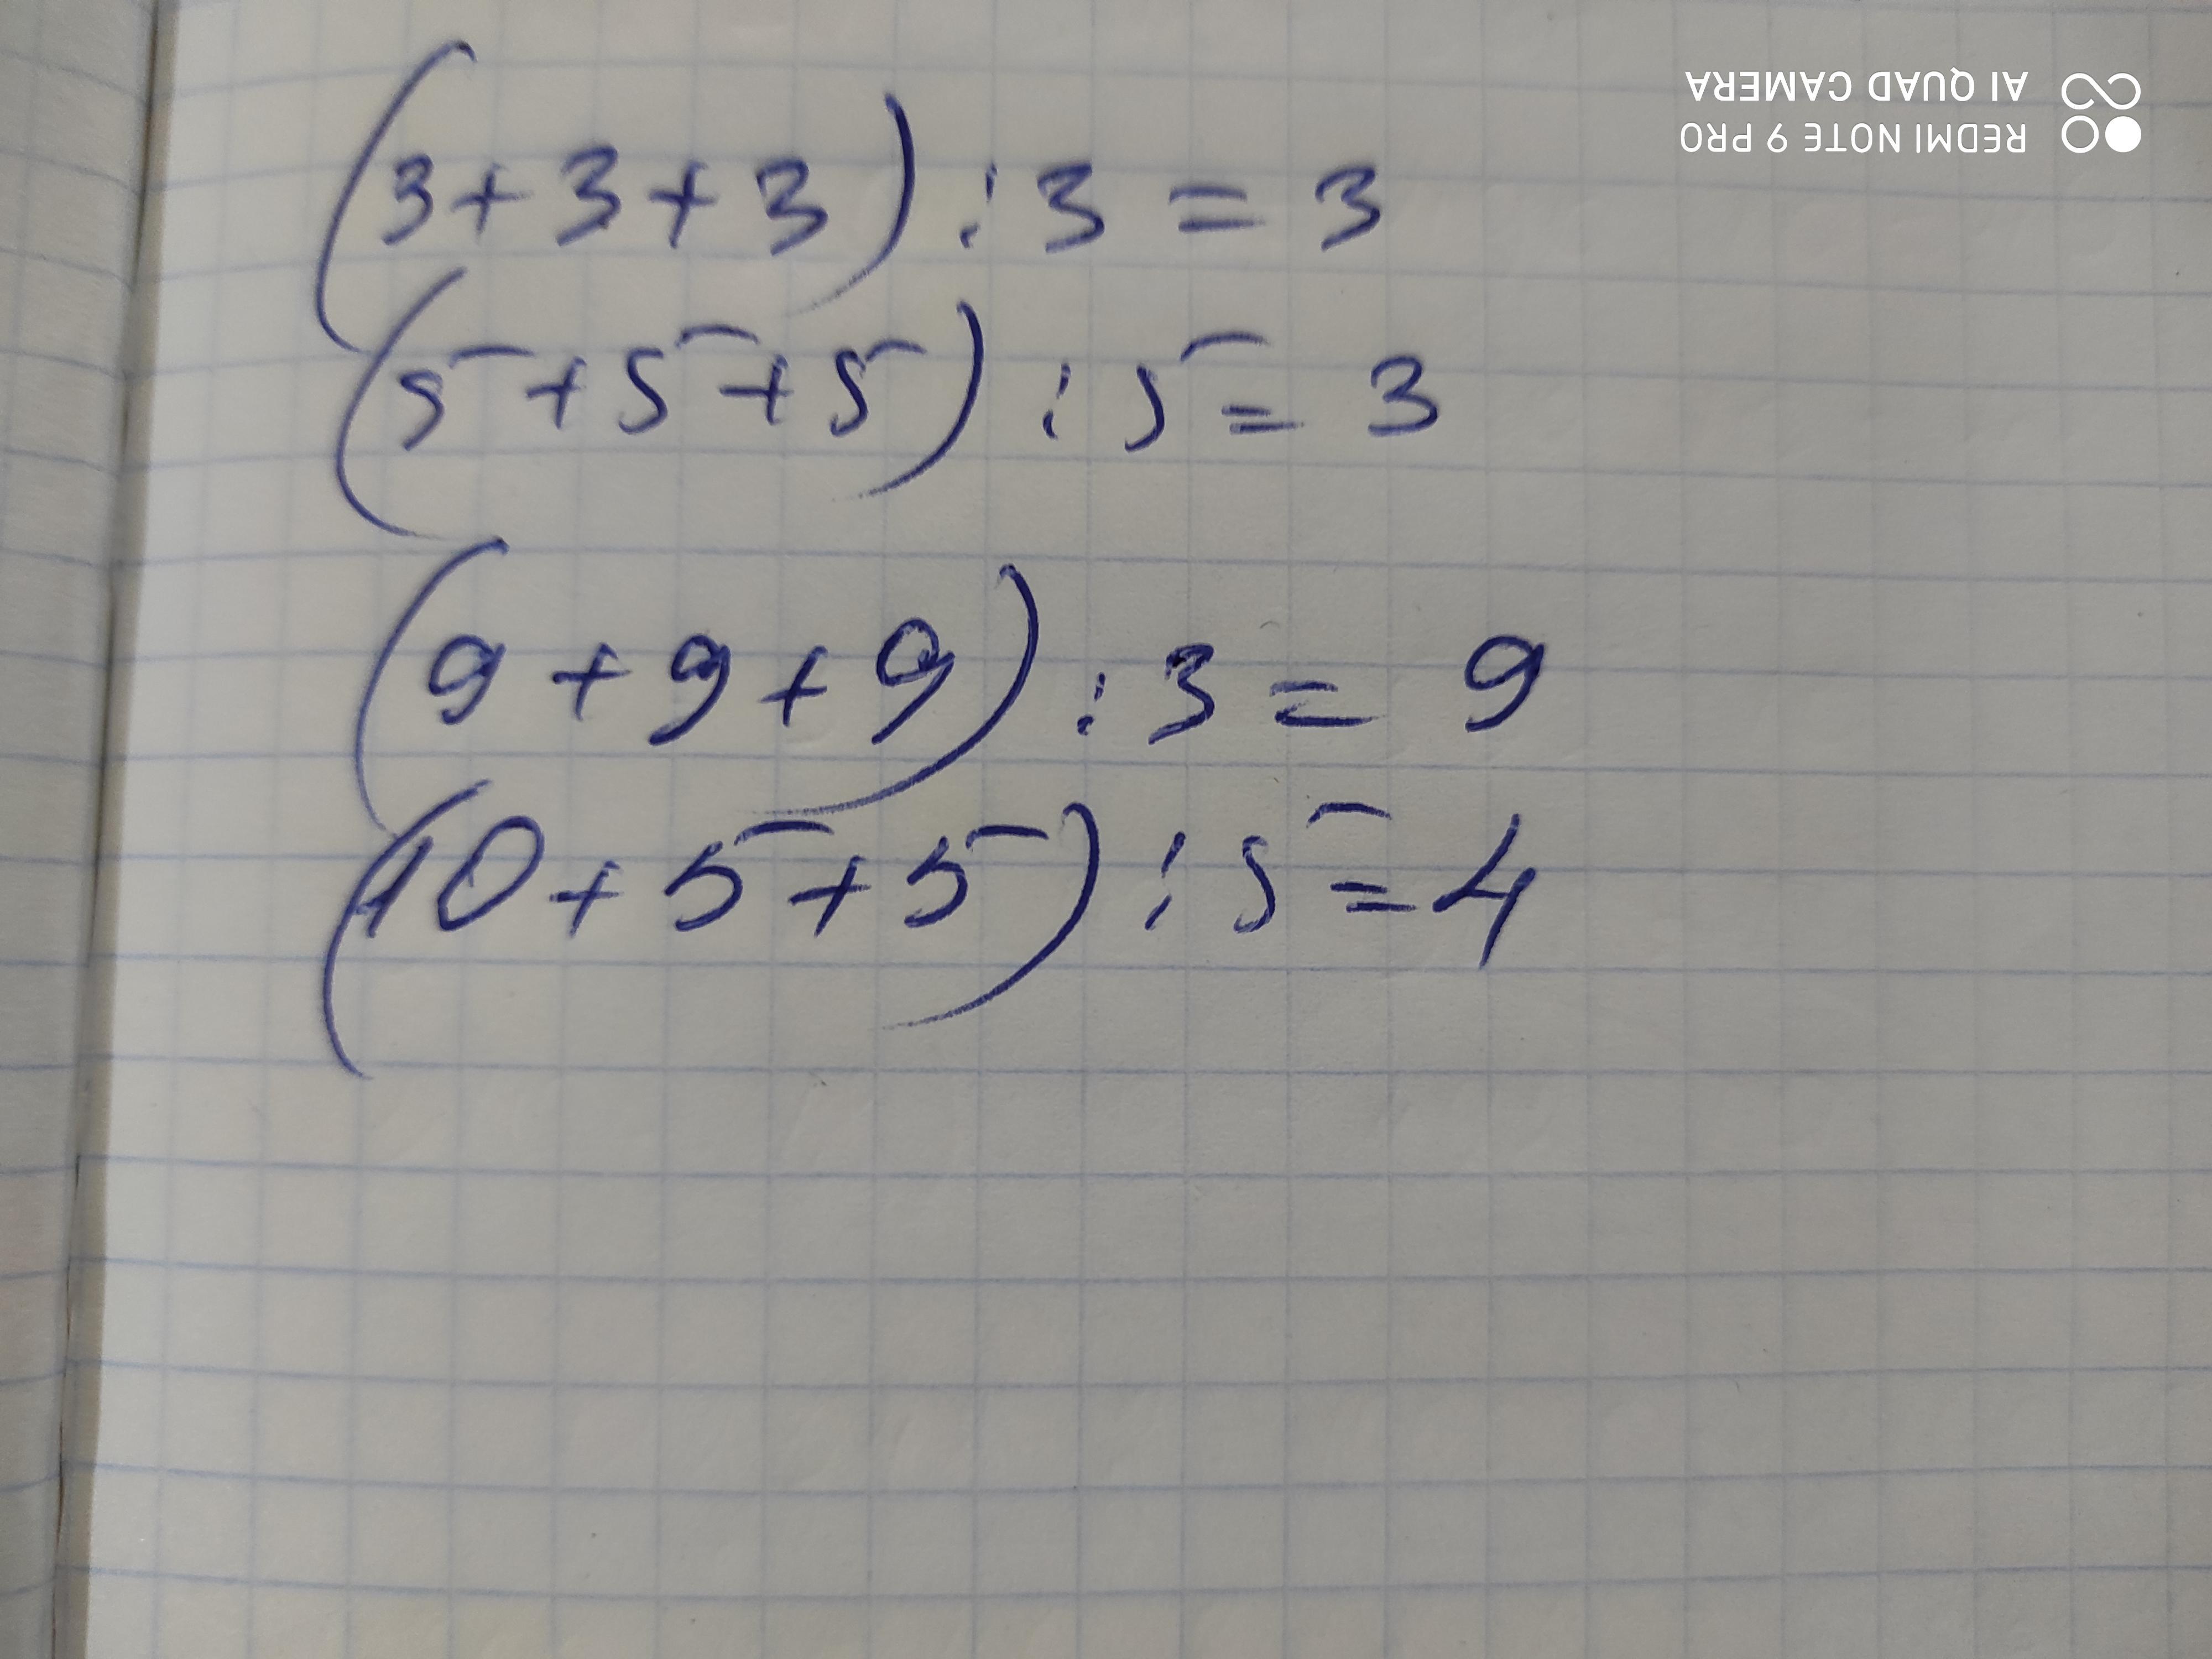 (3+3+3):3=3
(5+5+5):5=3
(9+9+9):3=9
(10+5+5):5=4
REDMI NOTE 9 PRO
AI QUAD CAMERA